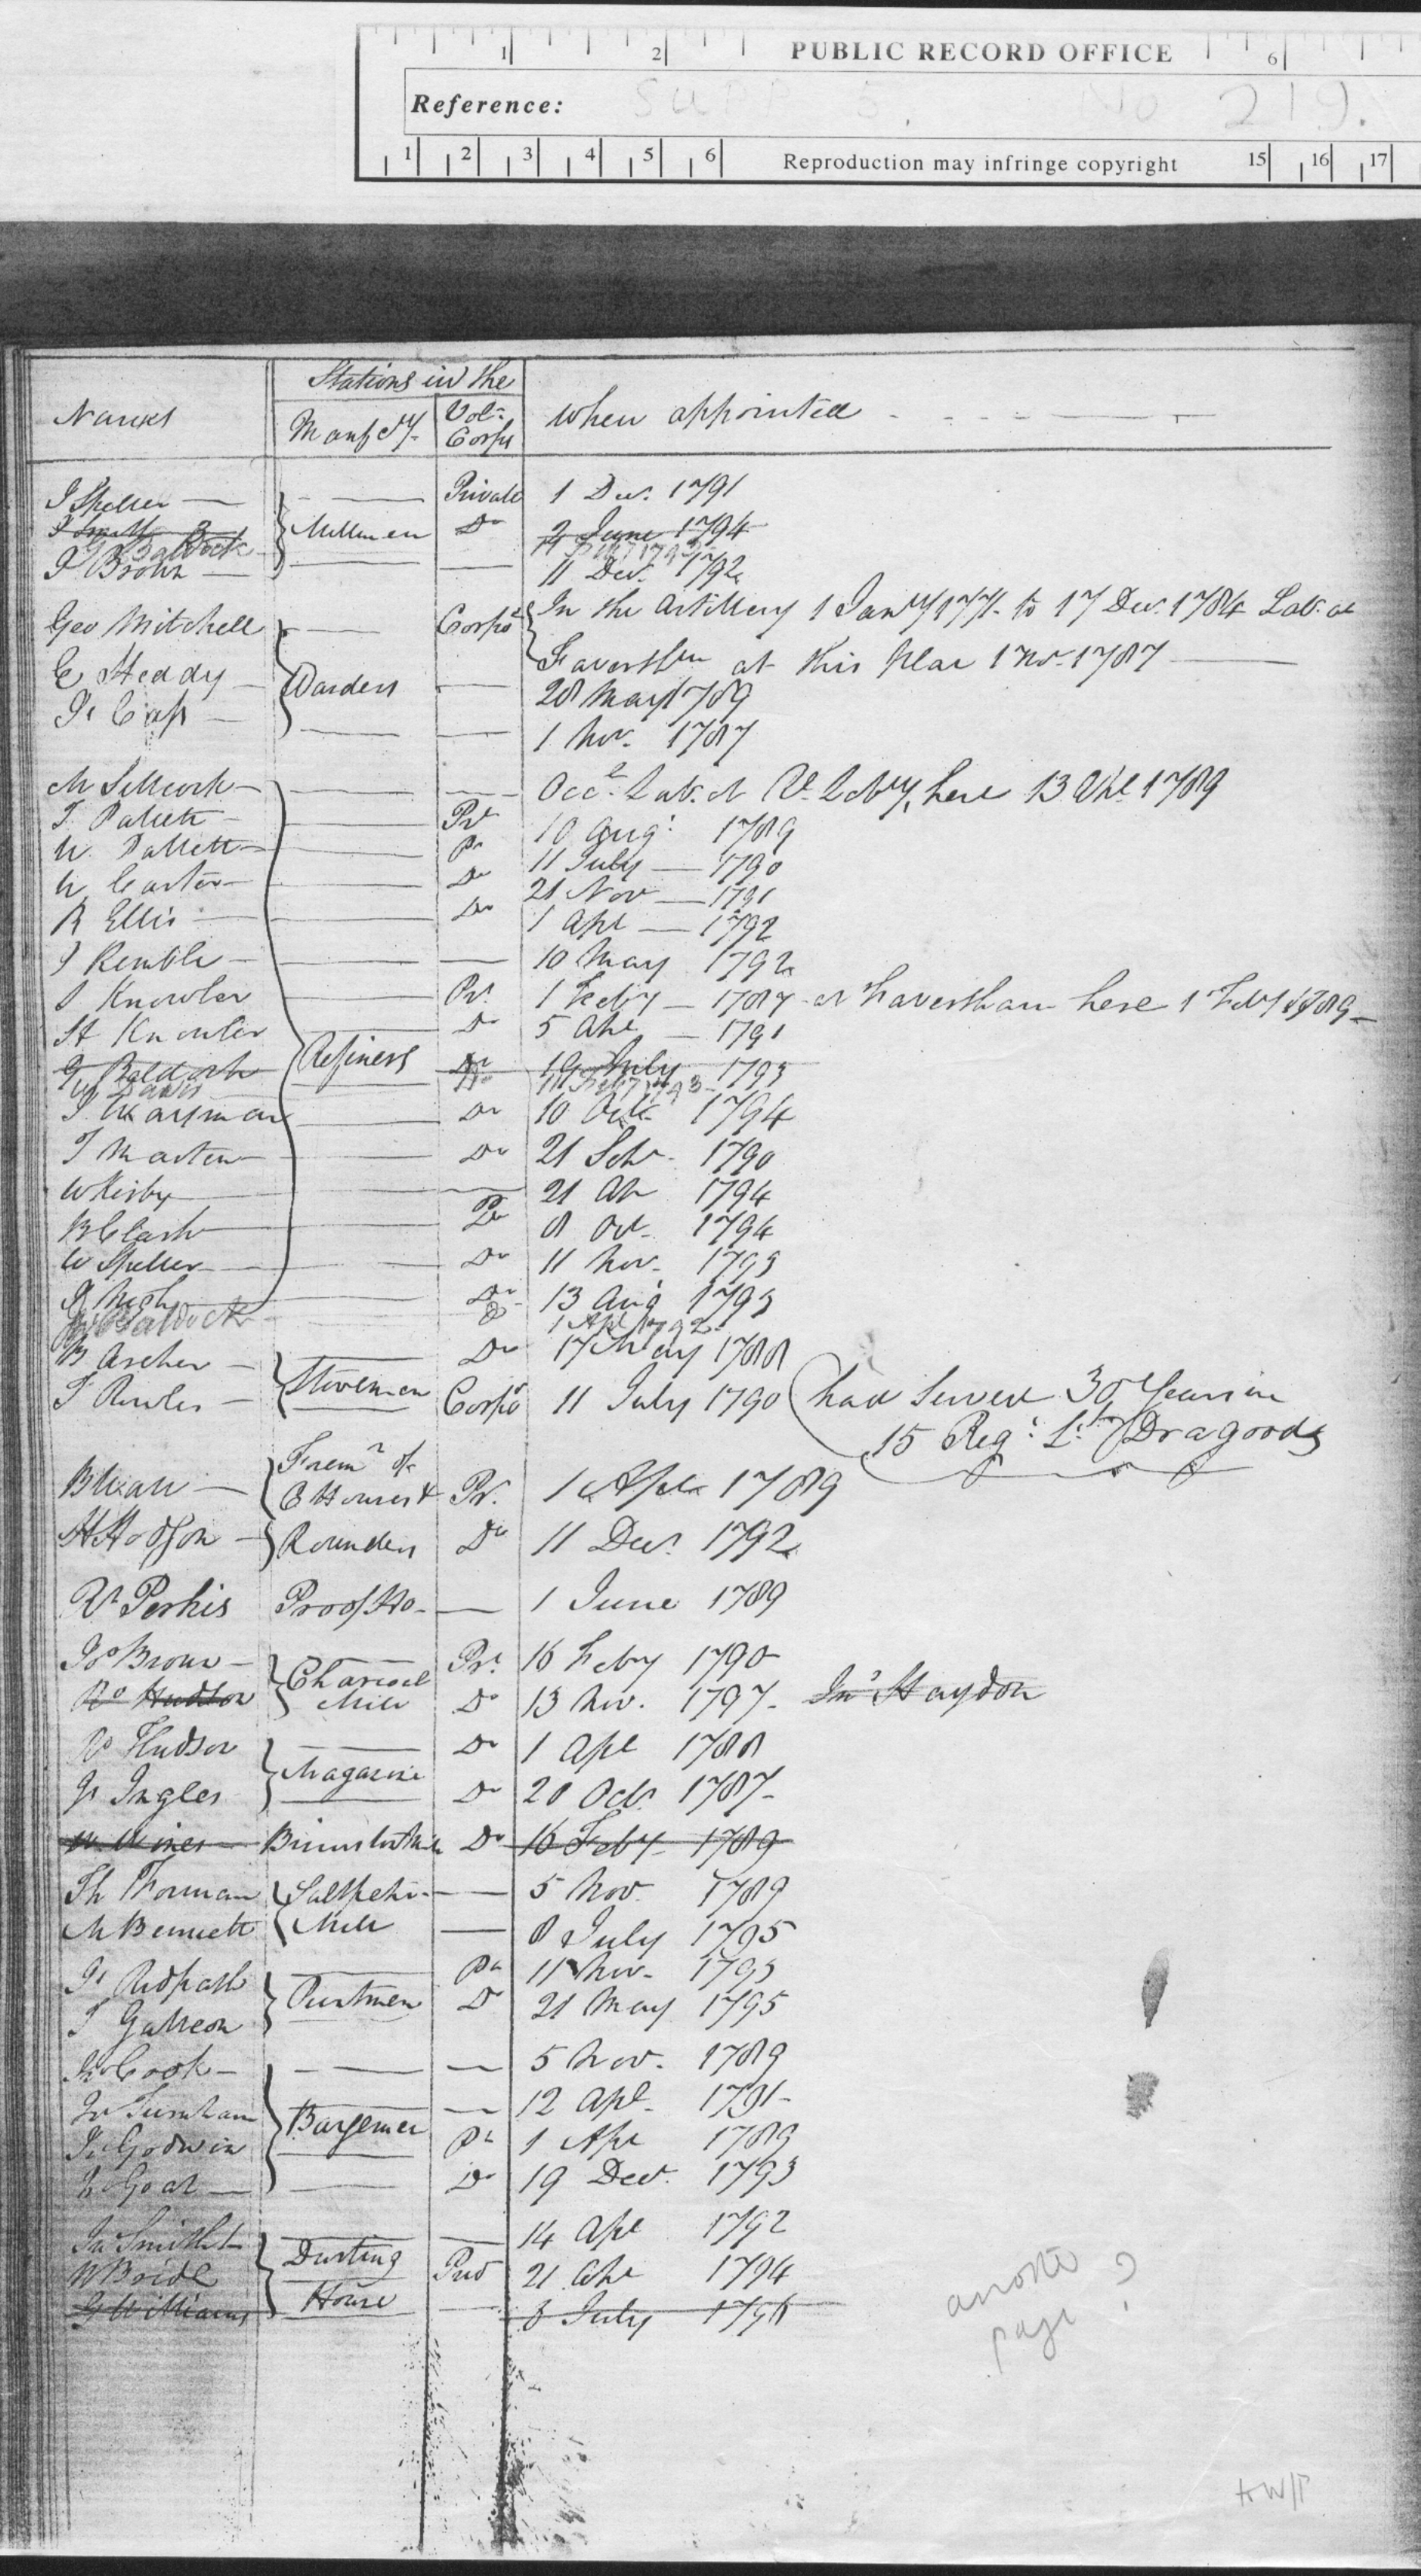 PUBLIC RECORD OFFICE
1 2 6
Reference: SUPP 5. No 219.
1 2 3 4 5 6 Reproduction may infringe copyright 15 16 17
Stations in the
Names Manfcty. Vol. Corps when appointed
J Speller Private 1 Dec. 1791
J Smith 2 Millmen Do 2 June 1794
G Baldock 11 Feby 1793
J Brown 11 Dec. 1792
Geo Mitchell Corpl In the Artillery 1 Jany 1771 to 17 Dec. 1784 Lab. at
Faversham at this place 1 Nov. 1787
E Headdy Warders 28 May 1789
Js Cap 1 Nov. 1787
M Sillcock Occl Lab. at Rl Laby, here 13 Apl 1789
T Pallett Prt 10 Augt 1789
W. Pallett Do 11 July 1790
W Carter Do 21 Nov 1791
R Ellis Do 1 Apl 1792
J Kemble 10 May 1792
J Knowler Prt 1 Feby 1787 at Faversham here 1 Feby 1789
St Knowler Do 5 Apl 1791
G Baldock Refiners Do 19 July 1793
W Davis Do 11 Feby 1793
J Wayman Do 10 Oct. 1794
T Martin Do 21 Sepr. 1790
W Kirby 21 Ap 1794
B Clark Pr 8 Oct. 1794
W Speller Do 11 Nov. 1793
J Nash Do 13 Aug 1793
Baldock Do 1 Apl 1792
B Archer Do 17 May 1788
T Rowles Stovemen Corpl 11 July 1790 had served 30 Years in
15 Regt Lt Dragoons
B Wall Foremn of C Houses & Pr. 1 Apl 1789
H Hodson Rounders Do 11 Decr 1792
Rt Perkis Proof Ho. 1 June 1789
Jo Brown Prt 16 Feby 1790
Ro Hudson Charcoal Mill Do 13 Nov. 1797 Jno Haydon
Ro Hudson Do 1 Apl 1788
Js Ingles Magazine Do 20 Octr 1787
W Wines Do 16 Feby 1789
Th Thorman Saltpetre 5 Nov. 1789
M Bennett Mill 8 July 1795
Js Ridpath Pr 11 Nov. 1793
T Galleon Puntmen Do 21 May 1795
Jn Cook 5 Nov. 1789
Jo Turnham 12 Apl. 1791
Jn Godwin Bargemen Pr 1 Apl 1789
Jn Goat Do 19 Decr. 1793
Jn Smith 1 14 Apl 1792
W Bridl Dusting Prt 21 Apl 1794
G Williams House 8 July 1795
another
page ?